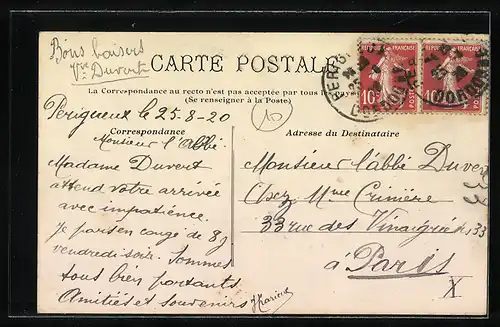 Bons baisers
Vve Duvert
CARTE POSTALE
La Correspondance au recto n'est pas acceptée par tous les pays
(Se renseigner à la Poste)
RÉPUBLIQUE FRANÇAISE
10
10
DORDOGNE
Périgueux le 25-8-20
10
Correspondance
Adresse du Destinataire
Monsieur l'abbé.
Madame Duvert
attend votre arrivée
avec impatience.
Je pars en congé de 8j
vendredi soir. Sommes
tous bien portants
Amitiés et souvenirs
Monsieur l'abbé Duvert
Chez Mme Crinière
33 rue des Vinaigriers 33
à Paris
33
X